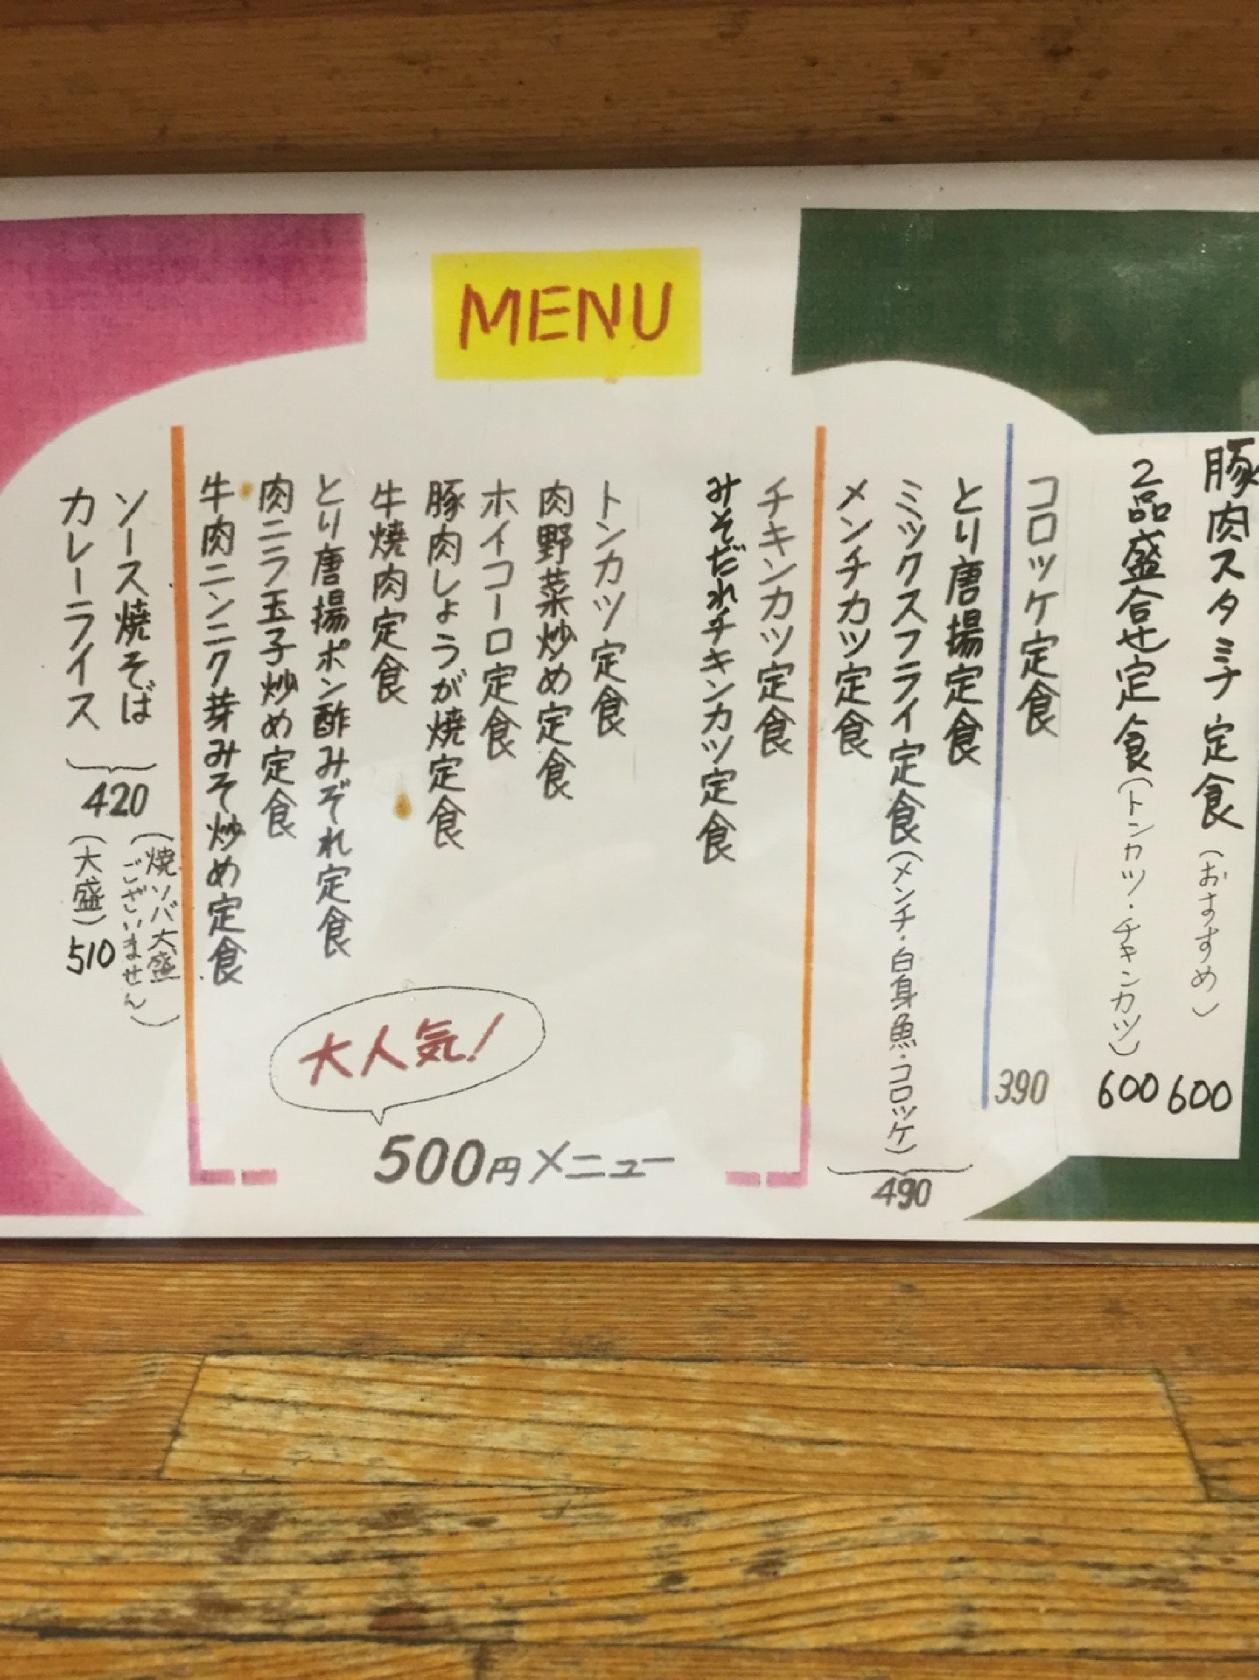 MENU
豚肉スタミナ定食(おすすめ)600
2品盛合せ定食(トンカツ・チキンカツ)600
コロッケ定食 390
とり唐揚定食
ミックスフライ定食(メンチ・白身魚・コロッケ)
メンチカツ定食
490
チキンカツ定食
みそだれチキンカツ定食
トンカツ定食
肉野菜炒め定食
ホイコーロ定食
豚肉しょうが焼定食
牛焼肉定食
とり唐揚ポン酢みぞれ定食
肉ニラ玉子炒め定食
牛肉ニンニク芽みそ炒め定食
大人気!
500円メニュー
ソース焼そば
カレーライス
420
(焼ソバ大盛
ございません)
(大盛)510